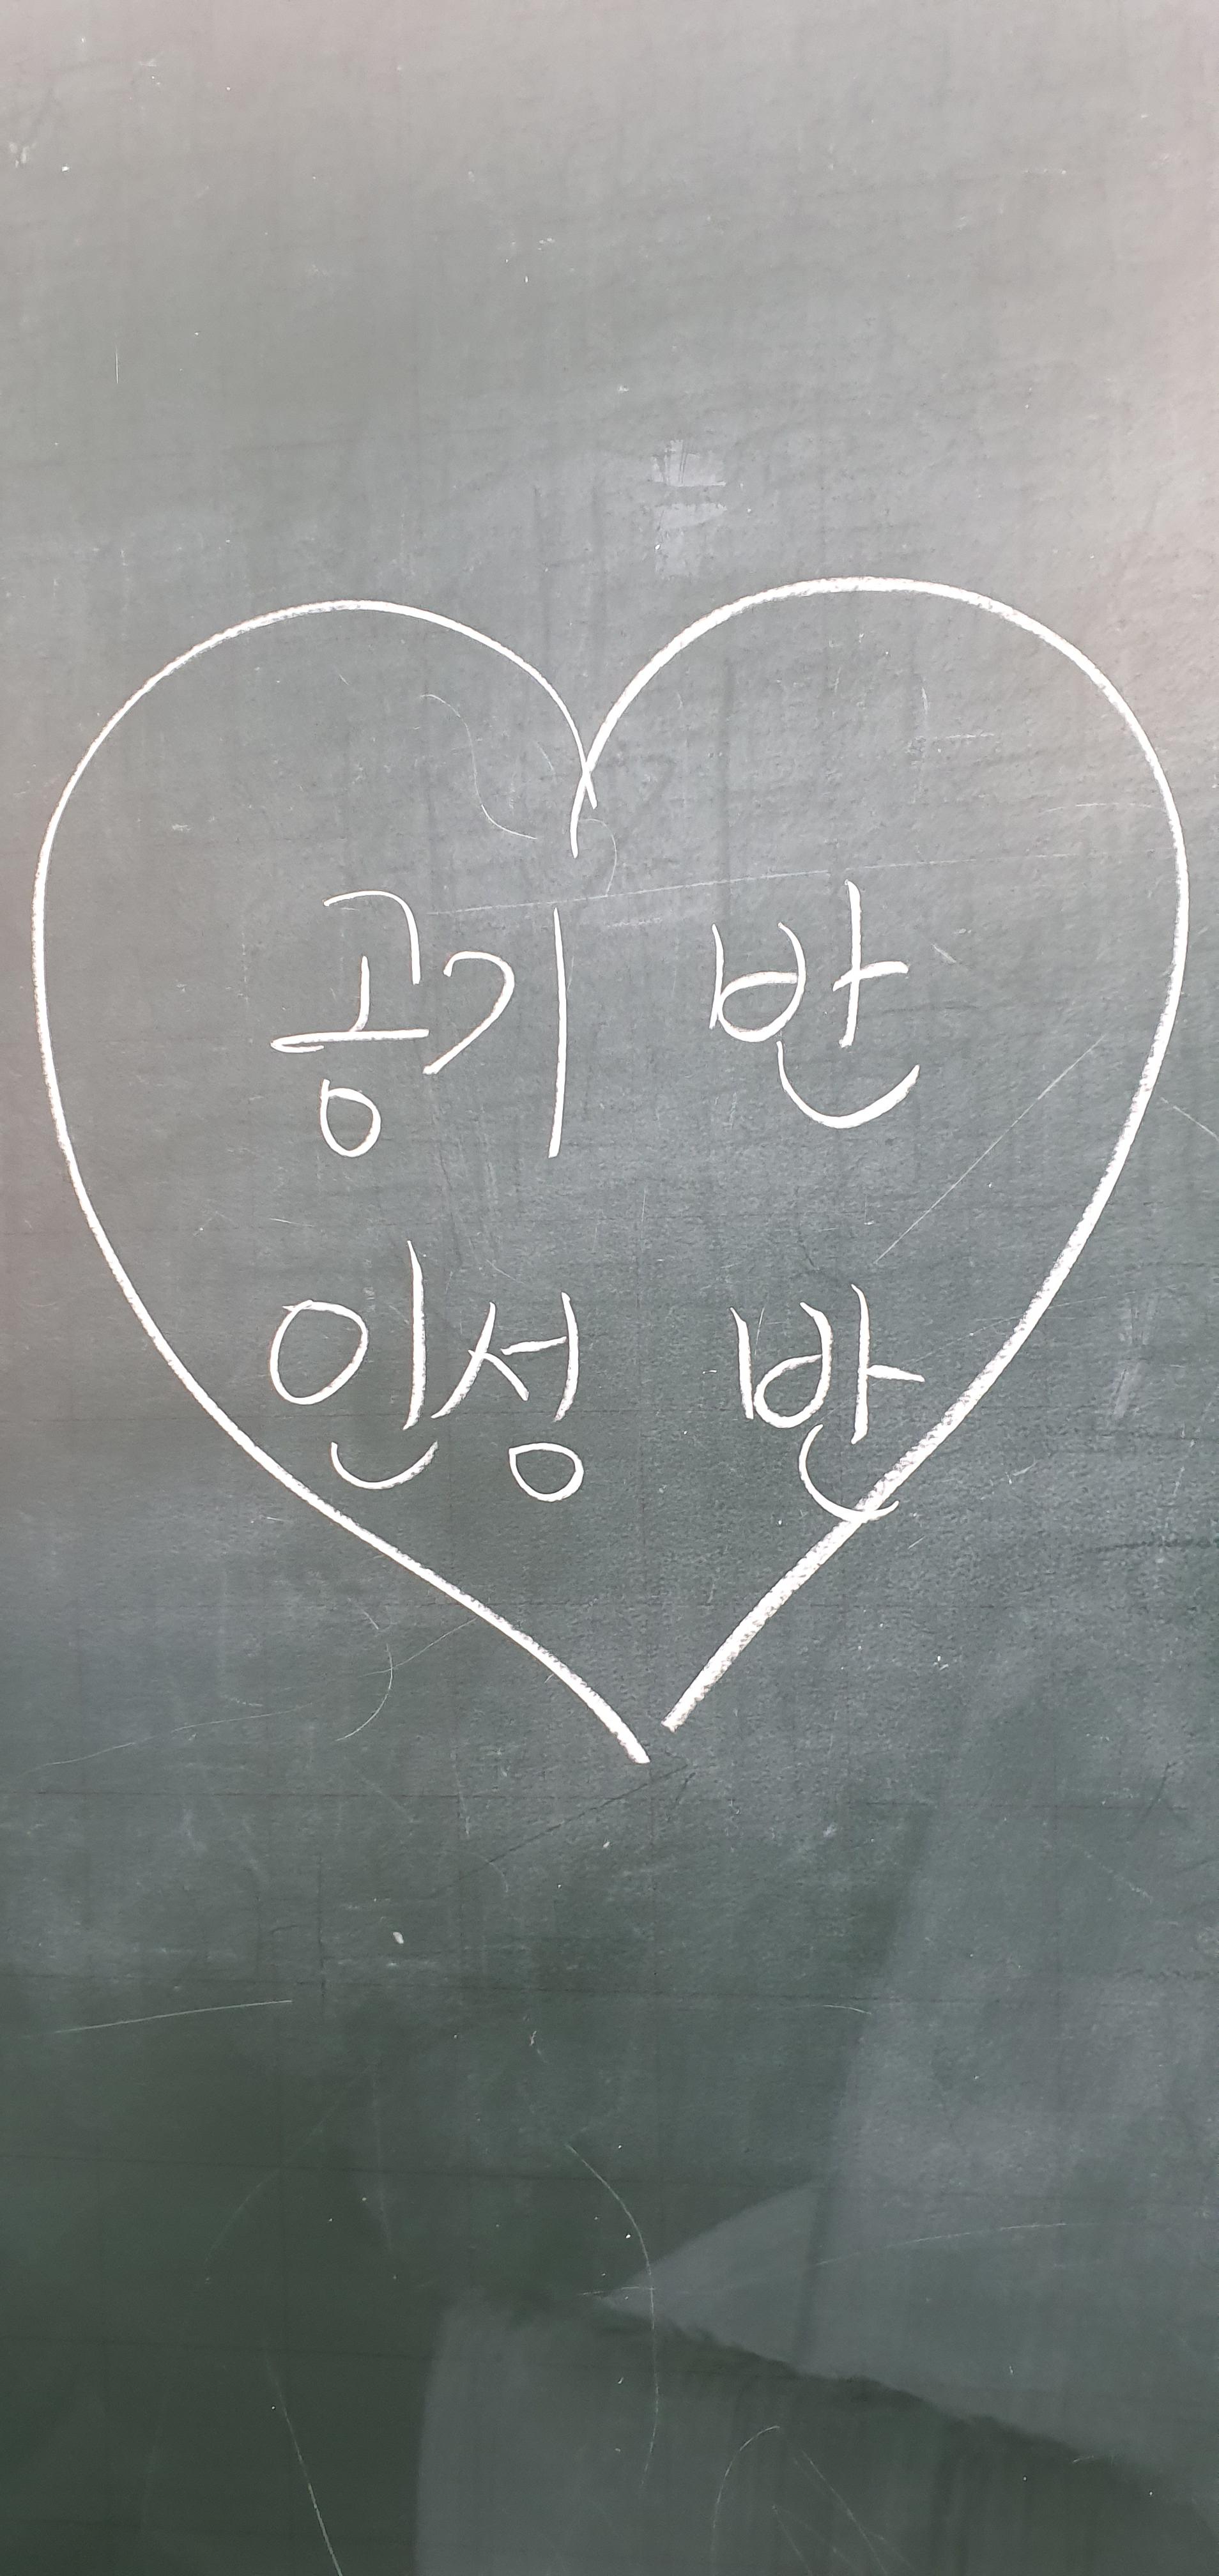 공기 반
인성 반